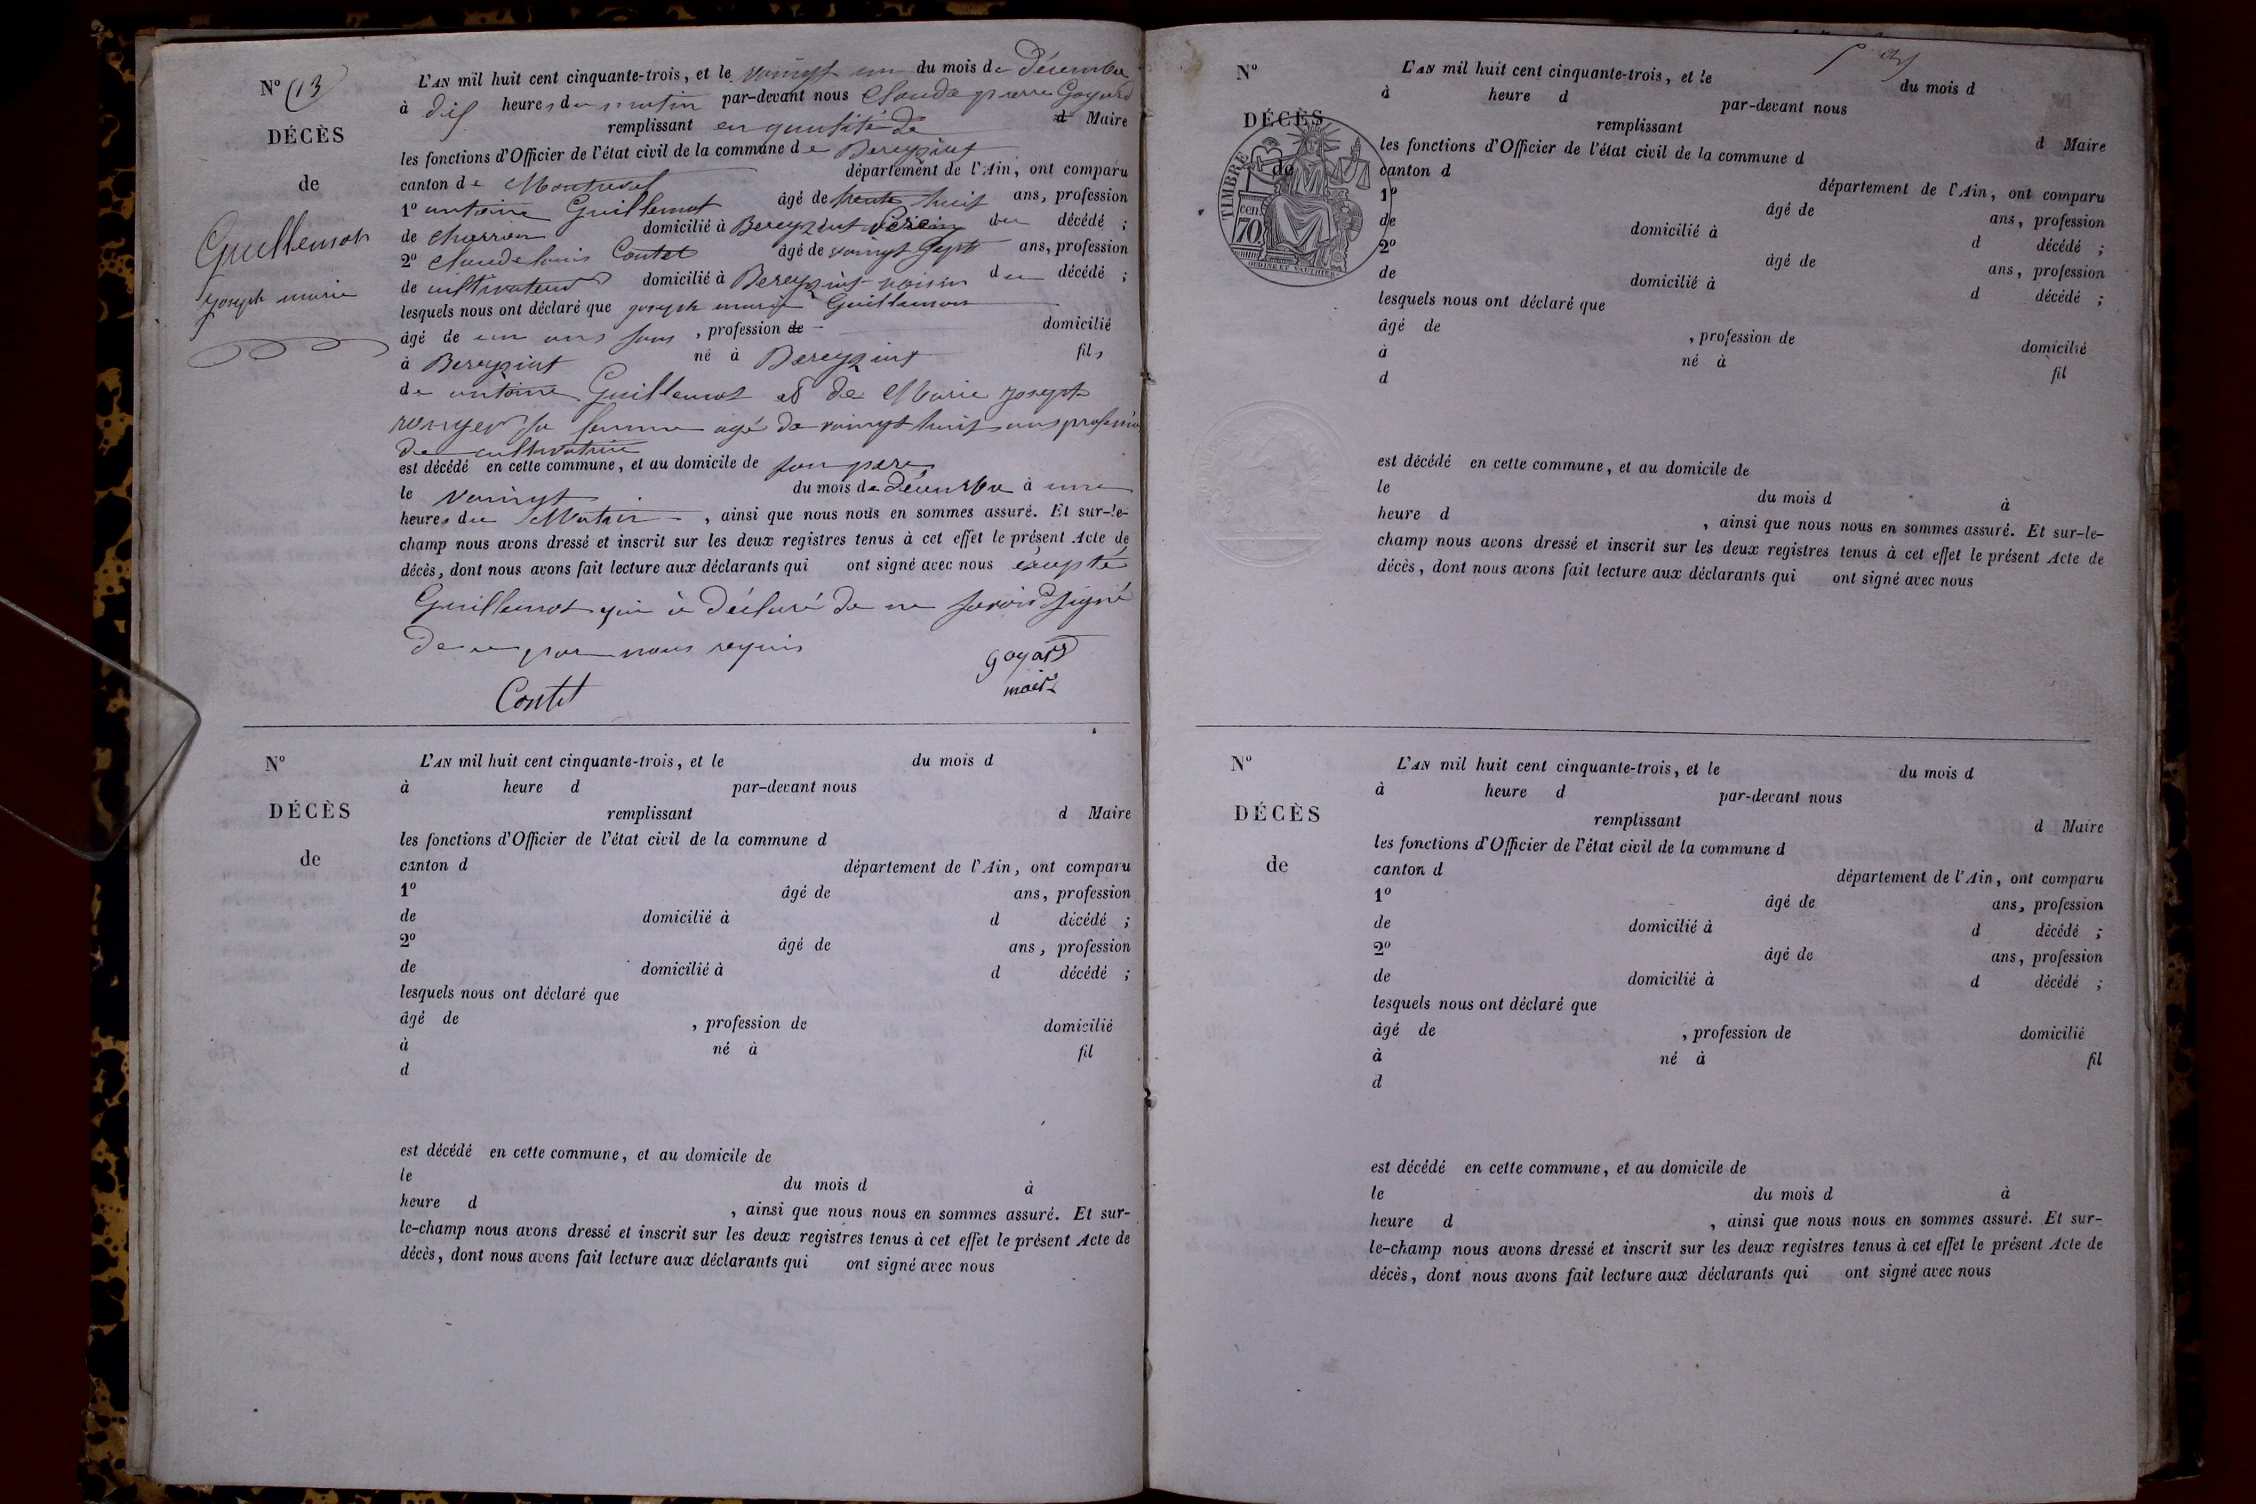 N° 13
DÉCÈS
de
Guillemot
joseph marie
L'AN mil huit cent cinquante-trois, et le vaingt un du mois de Décembre
à dix heures du matin par-devant nous Claude pierre Goyard
remplissant en qualité de d Maire
les fonctions d'Officier de l'état civil de la commune de Bereyziat
canton de Montrevel département de l'Ain, ont comparu
1° antoine Guillemot âgé de trente huit ans, profession
de charron domicilié à Bereyziat du décédé ;
2° claude louis Contet âgé de vaingt Sept ans, profession
de cultivateur domicilié à Bereyziat voisin du décédé ;
lesquels nous ont déclaré que joseph marie Guillemot
âgé de un ans , profession de domicilié
à Bereyziat né à Bereyziat fils
de antoine Guillemot et de Marie joseph
sa femme agé de vaingt huit ans profession
de cultivatrice
est décédé en cette commune, et au domicile de son père
le vaingt du mois de Décembre à une
heures du Matin , ainsi que nous nous en sommes assuré. Et sur-le-
champ nous avons dressé et inscrit sur les deux registres tenus à cet effet le présent Acte de
décès, dont nous avons fait lecture aux déclarants qui ont signé avec nous excepté
Guillemot qui à déclaré de ne savoir signé
de ce par nous requis
Contet
Goyard
maire
N°
DÉCÈS
de
L'AN mil huit cent cinquante-trois, et le du mois d
à heure d par-devant nous
remplissant d Maire
les fonctions d'Officier de l'état civil de la commune d
canton d département de l'Ain, ont comparu
1° âgé de ans, profession
de domicilié à d décédé ;
2° âgé de ans, profession
de domicilié à d décédé ;
lesquels nous ont déclaré que
âgé de , profession de domicilié
à né à fil
d
est décédé en cette commune, et au domicile de
le du mois d à
heure d , ainsi que nous nous en sommes assuré. Et sur-
le-champ nous avons dressé et inscrit sur les deux registres tenus à cet effet le présent Acte de
décès, dont nous avons fait lecture aux déclarants qui ont signé avec nous
N°
DÉCÈS
de
TIMBRE
70
cen.
L'AN mil huit cent cinquante-trois, et le du mois d
à heure d par-devant nous
remplissant d Maire
les fonctions d'Officier de l'état civil de la commune d
canton d département de l'Ain, ont comparu
1° âgé de ans, profession
de domicilié à d décédé ;
2° âgé de ans, profession
de domicilié à d décédé ;
lesquels nous ont déclaré que
âgé de , profession de domicilié
à né à fil
d
est décédé en cette commune, et au domicile de
le du mois d à
heure d , ainsi que nous nous en sommes assuré. Et sur-le-
champ nous avons dressé et inscrit sur les deux registres tenus à cet effet le présent Acte de
décès, dont nous avons fait lecture aux déclarants qui ont signé avec nous
N°
DÉCÈS
de
L'AN mil huit cent cinquante-trois, et le du mois d
à heure d par-devant nous
remplissant d Maire
les fonctions d'Officier de l'état civil de la commune d
canton d département de l'Ain, ont comparu
1° âgé de ans, profession
de domicilié à d décédé ;
2° âgé de ans, profession
de domicilié à d décédé ;
lesquels nous ont déclaré que
âgé de , profession de domicilié
à né à fil
d
est décédé en cette commune, et au domicile de
le du mois d à
heure d , ainsi que nous nous en sommes assuré. Et sur-
le-champ nous avons dressé et inscrit sur les deux registres tenus à cet effet le présent Acte de
décès, dont nous avons fait lecture aux déclarants qui ont signé avec nous